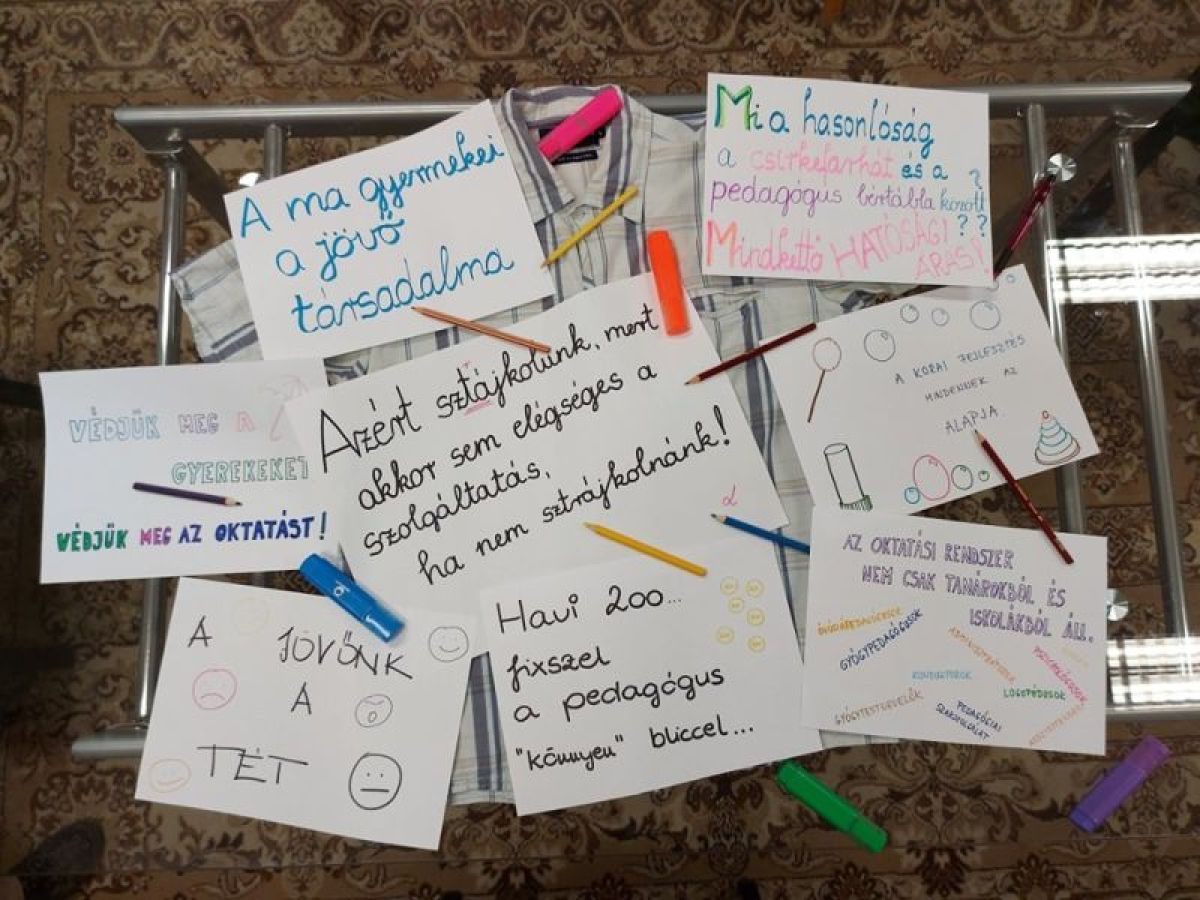 A ma gyermekei
a jövő
társadalma
Mi a hasonlóság
a csirkefarhát és a ?
pedagógus bértábla között
??
Mindkettő HATÓSÁGI
ÁRAS!
VÉDJÜK MEG A
GYEREKEKET
VÉDJÜK MEG AZ OKTATÁST!
Azért sztájkolunk, mert
r
akkor sem elégséges a
szolgáltatás,
ha nem sztrájkolnánk!
A KORAI FEJLESZTÉS
MINDENNEK AZ
ALAPJA.
A
JÖVŐNK
A
TÉT
Havi 200...
fixszel
a pedagógus
"könnyen" bliccel...
AZ OKTATÁSI RENDSZER
NEM CSAK TANÁROKBÓL ÉS
ISKOLÁKBÓL ÁLL.
ÓVODAPEDAGÓGUSOK
GYÓGYPEDAGÓGUSOK
KONDUKTOROK
PSZICHOLÓGUSOK
LOGOPÉDUSOK
GYÓGYTESTNEVELŐK
PEDAGÓGIAI
SZAKSZOLGÁLAT